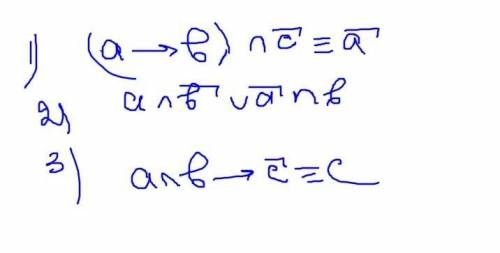 1) (a → b) ∩ c̅ ≡ a̅
2) a ∩ b̅ ∪ a̅ ∩ b
3) a ∩ b → c̅ ≡ c